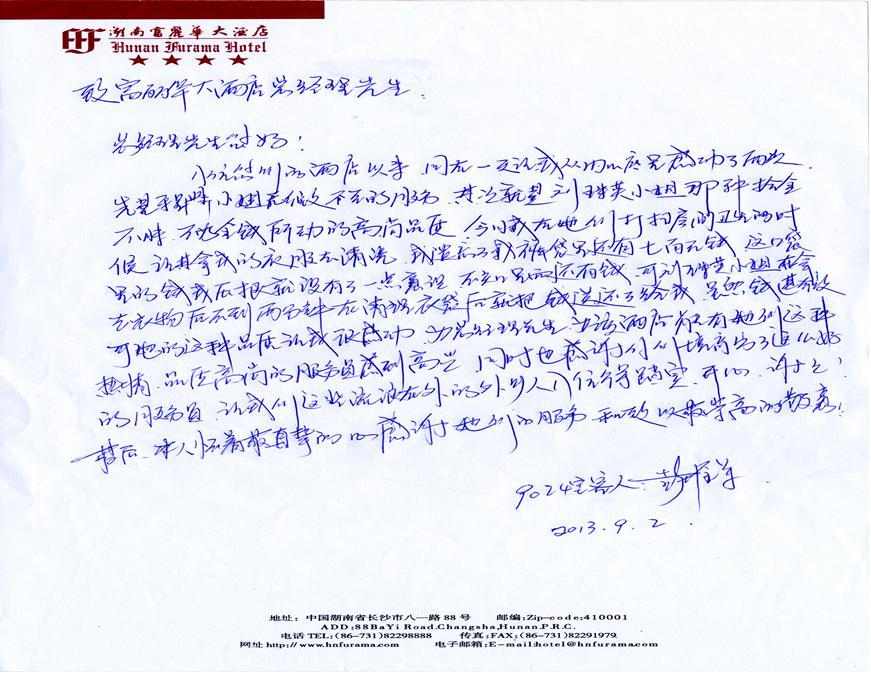 湖南富麗華大酒店
Hunan Furama Hotel
致富丽华大酒店总经理先生：
总经理先生您好！
住您们的酒店以来 同在一天让我从内心底里感动了两次
先是 小姐 的服务 其次就是刘 英小姐那种拾金
不昧 不为金钱所动的高尚品质 今日我在她们打扫房间卫生的时
候 让其拿我的衣服去清洗 我遗忘了我裤袋里还有七百元钱 这口袋
里的钱我压根就没有了一点意识 口里面还有钱 可刘 英小姐在拿
去衣物后不到两分钟 在清理衣袋后就把钱送还了给我 虽然钱甚微
可她的这种品质让我很感动 为总经理先生 该酒店能有她们这种
热情 品质高尚的服务员感到高兴 同时也感谢你们培育出了这么好
的服务员 让我们这些流浪在外的外乡人 住得踏实 开心 谢谢！
最后 本人怀着最真挚的心感谢她们的服务 和致以最崇高的敬意！
9024室客人：彭
2013.9.2.
地址：中国湖南省长沙市八一路88号 邮编:Zip-code:410001
ADD:88BaYi Road.Changsha,Hunan,P.R.C.
电话TEL:(86-731)82298888 传真:FAX:(86-731)82291979
网址http://www.hnfurama.com 电子邮箱:E-mail:hotel@hnfurama.com